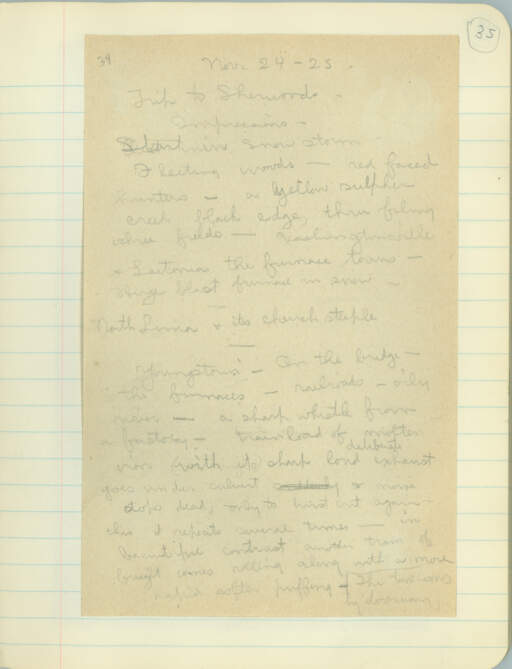 35
39
Nov. 24-25.
Trip to Sherwoods -
Impressions -
Start in snow storm -
Fleeting woods — red faced
hunters — a yellow sulphur
creek black edge, thru
white fields — Washingtonville
+ Leetonia the furnace towns —
Huge blast furnace in snow -
North Lima + its church steeple
Youngstown - On the bridge -
the furnaces - railroads - oily
river — a sharp whistle from
a factory - train load of molten
iron (with its sharp loud deliberate exhaust
goes under culvert suddenly noise
stops dead, only to burst out again -
this it repeats several times — in
beautiful contrast another train of
freight comes rolling along with a more
rapid softer puffing — The